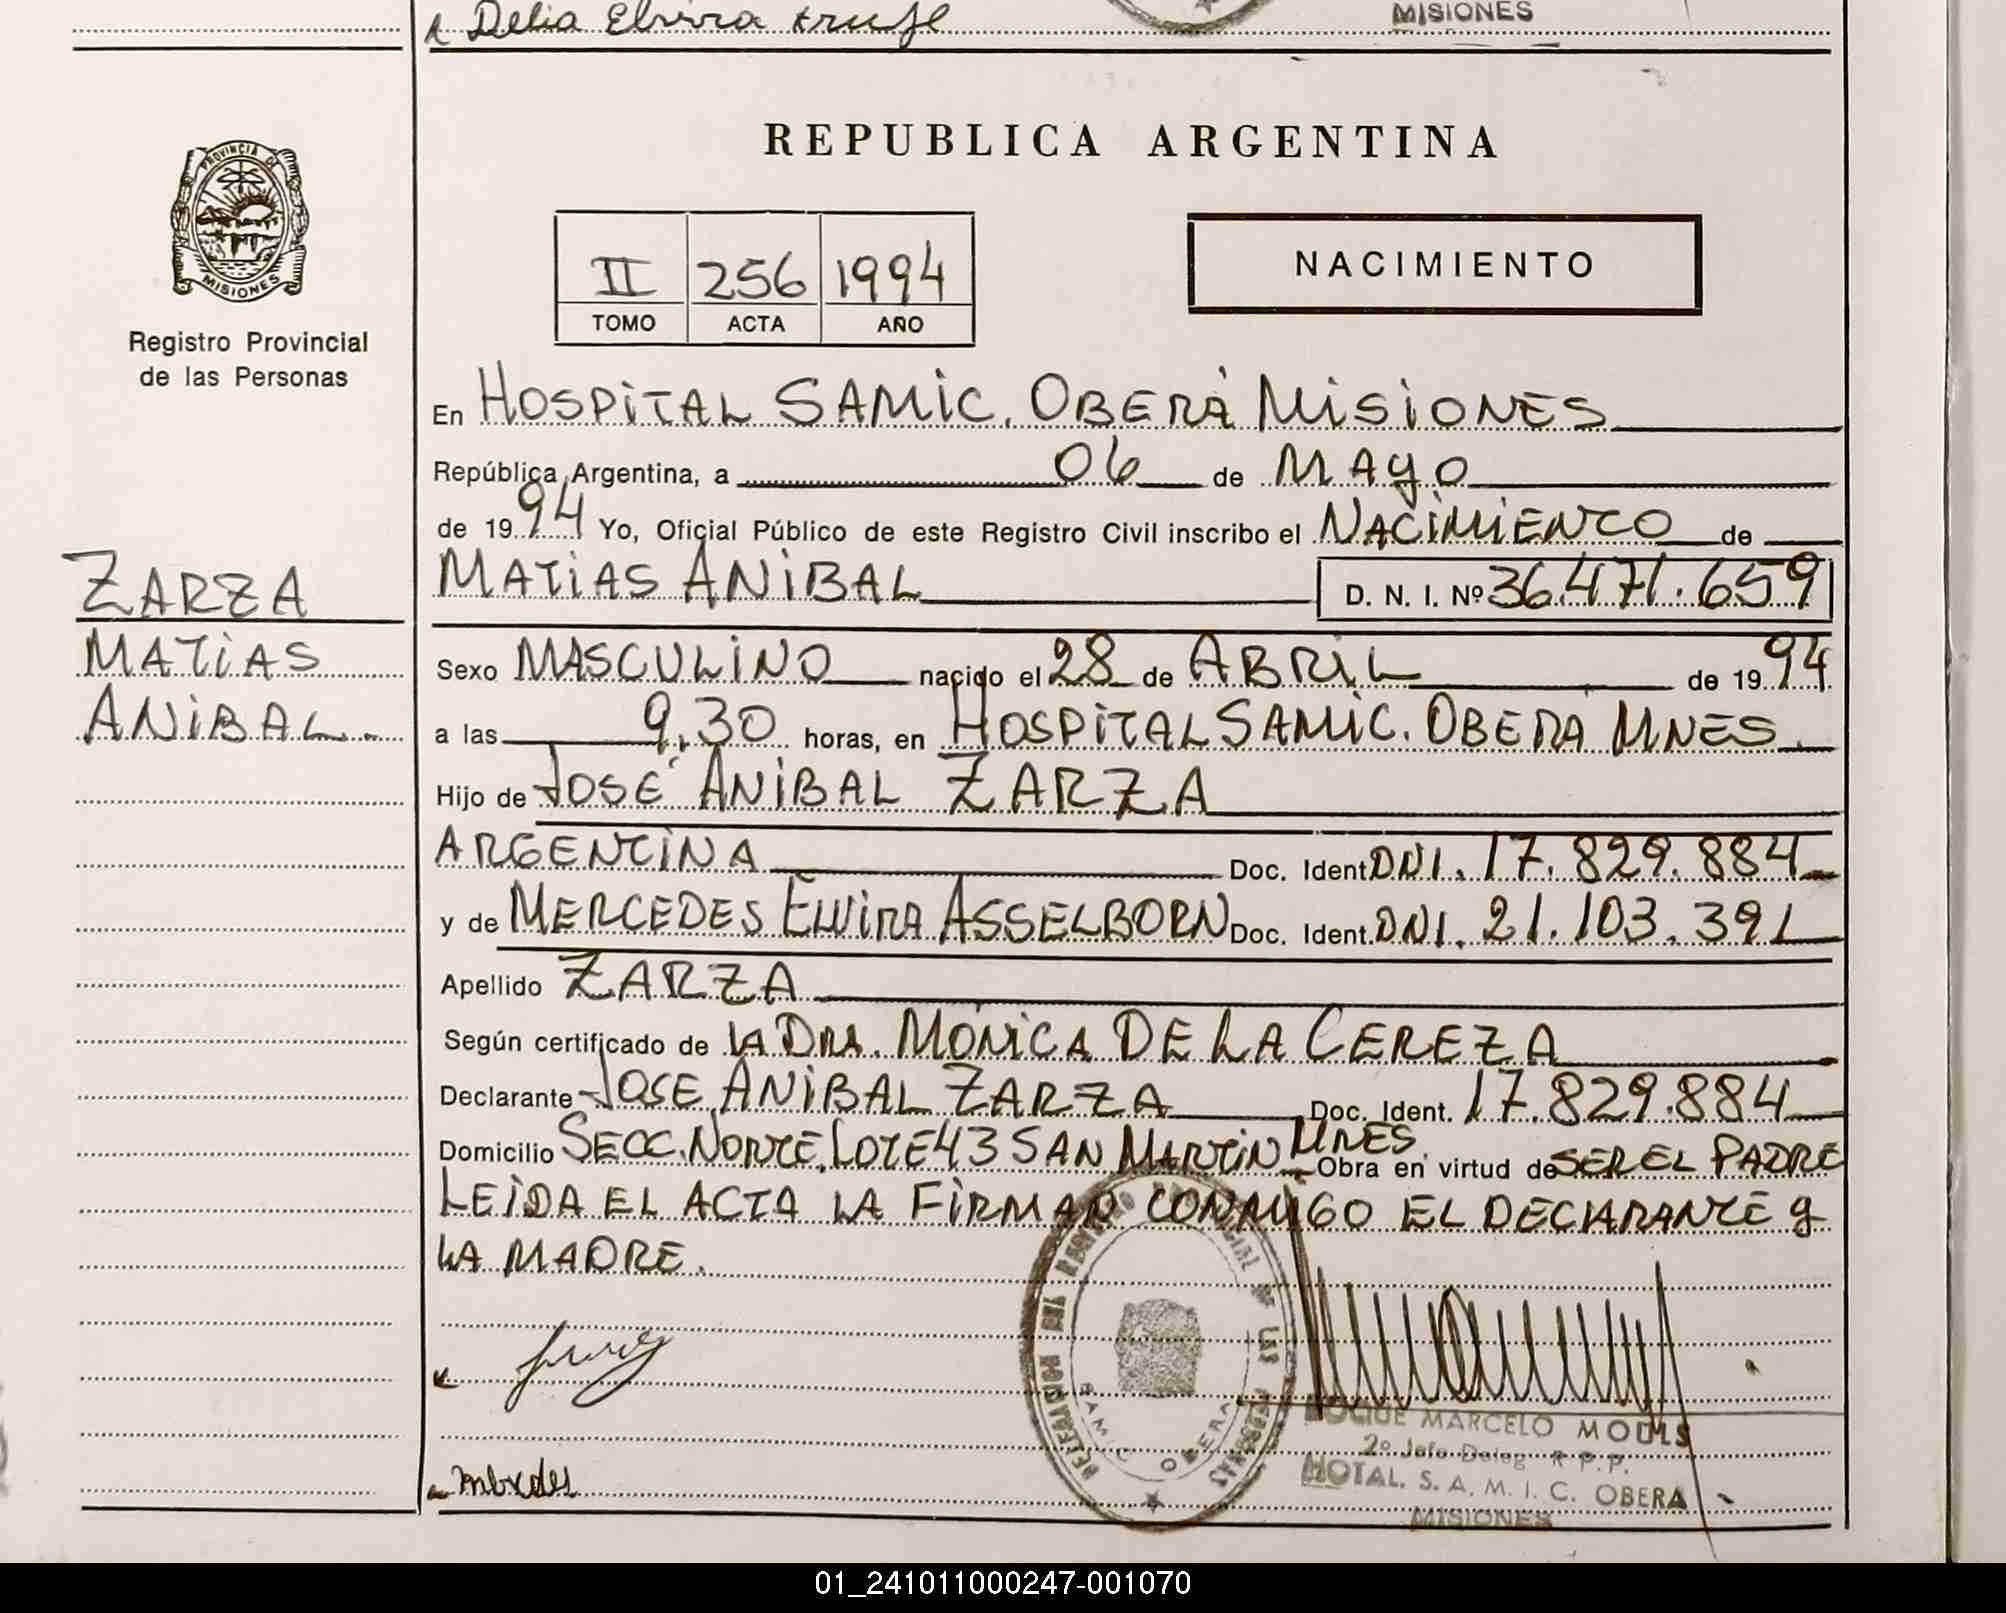 Delia Elvira
MISIONES
REPUBLICA ARGENTINA
PROVINCIA DE
MISIONES
Registro Provincial
de las Personas
II 256 1994
TOMO ACTA AÑO
NACIMIENTO
En HOSPITAL SAMIC. OBERÁ MISIONES
República Argentina, a 06 de MAYO
de 1994 Yo, Oficial Público de este Registro Civil inscribo el NACIMIENTO de
ZARZA
MATIAS
ANIBAL
MATIAS ANIBAL D. N. I. Nº 36.471.659
Sexo MASCULINO nacido el 28 de ABRIL de 1994
a las 9,30 horas, en HOSPITAL SAMIC. OBERA MNES.
Hijo de JOSÉ ANIBAL ZARZA
ARGENTINA Doc. Ident. DNI. 17.829.884
y de MERCEDES ELVIRA ASSELBORN Doc. Ident. DNI. 21.103.391
Apellido ZARZA
Según certificado de LA DRA. MONICA DE LA CEREZA
Declarante JOSE ANIBAL ZARZA Doc. Ident. 17.829.884
Domicilio SECC. NORTE. LOTE 43 SAN MARTIN MNES. Obra en virtud de SER EL PADRE
LEIDA EL ACTA LA FIRMAN CONMIGO EL DECLARANTE y
LA MADRE.
SAMIC OBERA
MARCELO
2º Jefe Deleg R P.P.
HOTAL. S. A. M. I. C. OBERA
MISIONES
01_241011000247-001070